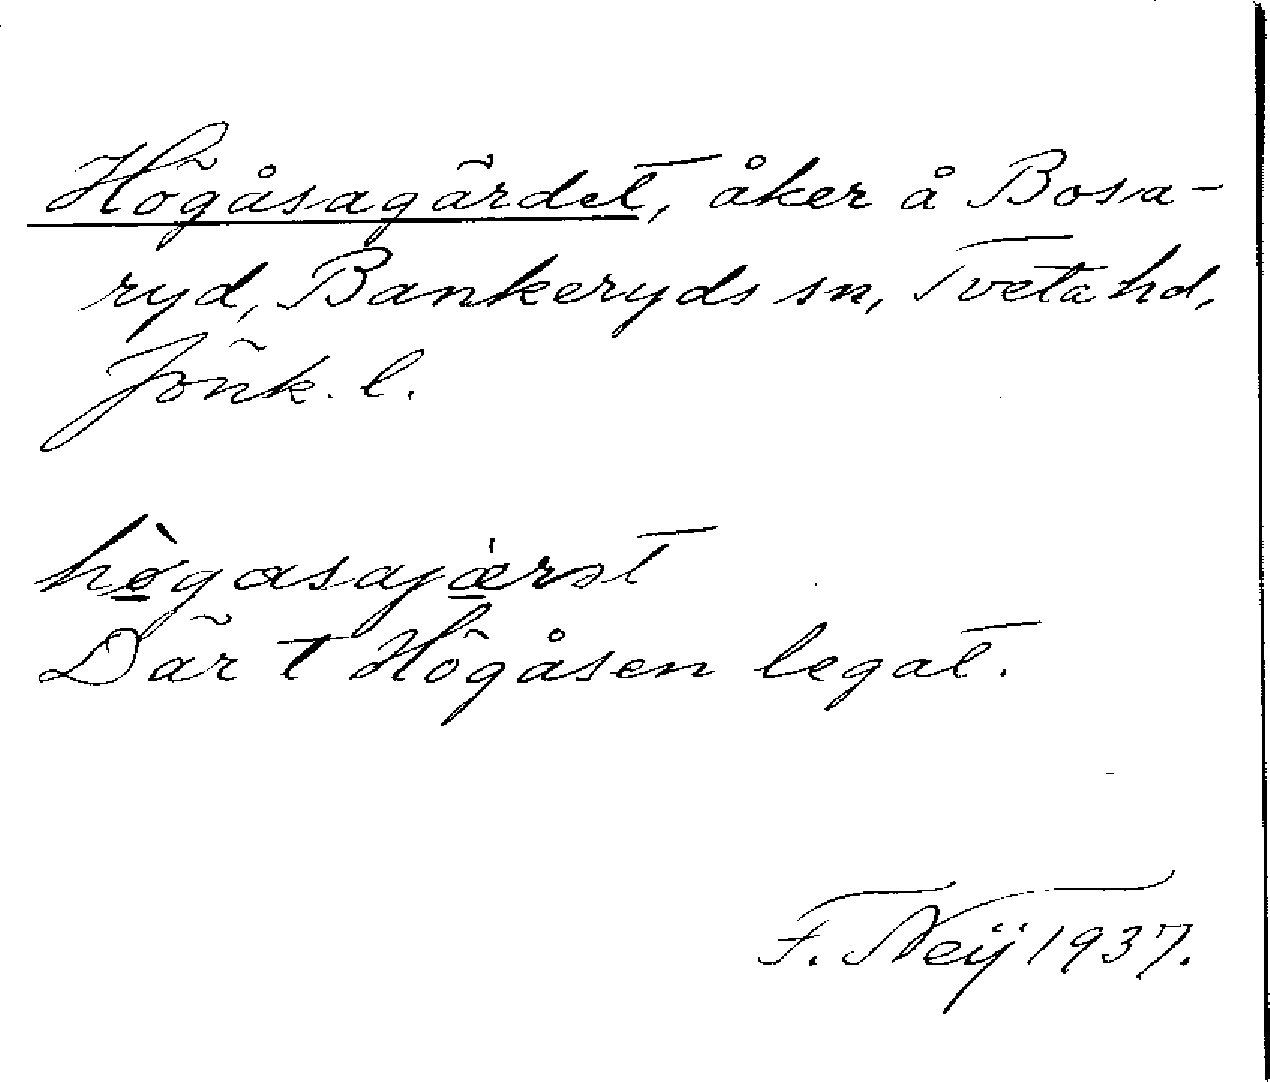 Högåsagärdet, åker å Bosa-
ryd, Bankeryds sn, Tveta hd,
Jönk. l.
hø̠̀gasajæ̠̍rət
Där t Högåsen legat.
F. Neÿ 1937.